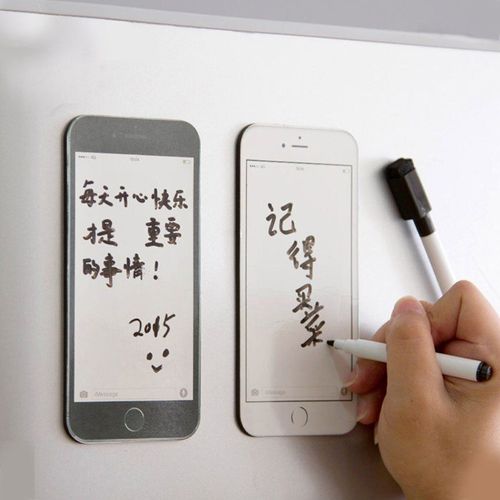 每天开心快乐
才是 重要
的事情!
2015
iMessage
记得买菜
iMessage